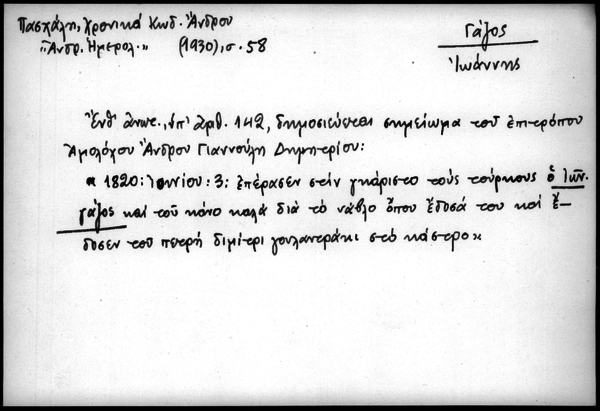 Πασχάλη, Χρονικά Κωδ. Άνδρου
"Άνδρ. Ημερολ." (1930), σ. 58
Γάζος
Ἰωάννης
Ἐνθ' ἀνωτ., ὑπ' ἀριθ. 142, δημοσιεύεται σημείωμα τοῦ ἐπιτρόπου
Ἀμολόχου Ἄνδρου Γιαννούλη Δημητρίου:
« 1820: Ἰουνίου: 3: ἐπέρασεν στὴν γκάριστο τοὺς τούρκους ὁ Ἰων.
γάζος καὶ τοῦ κάνο καλὰ διὰ τὸ νάβλο ὅπου ἔδοσά του καὶ ἔ–
δοσεν τοῦ πετρῆ διμίτρι γουλανδράκι στὸ κάστρο»